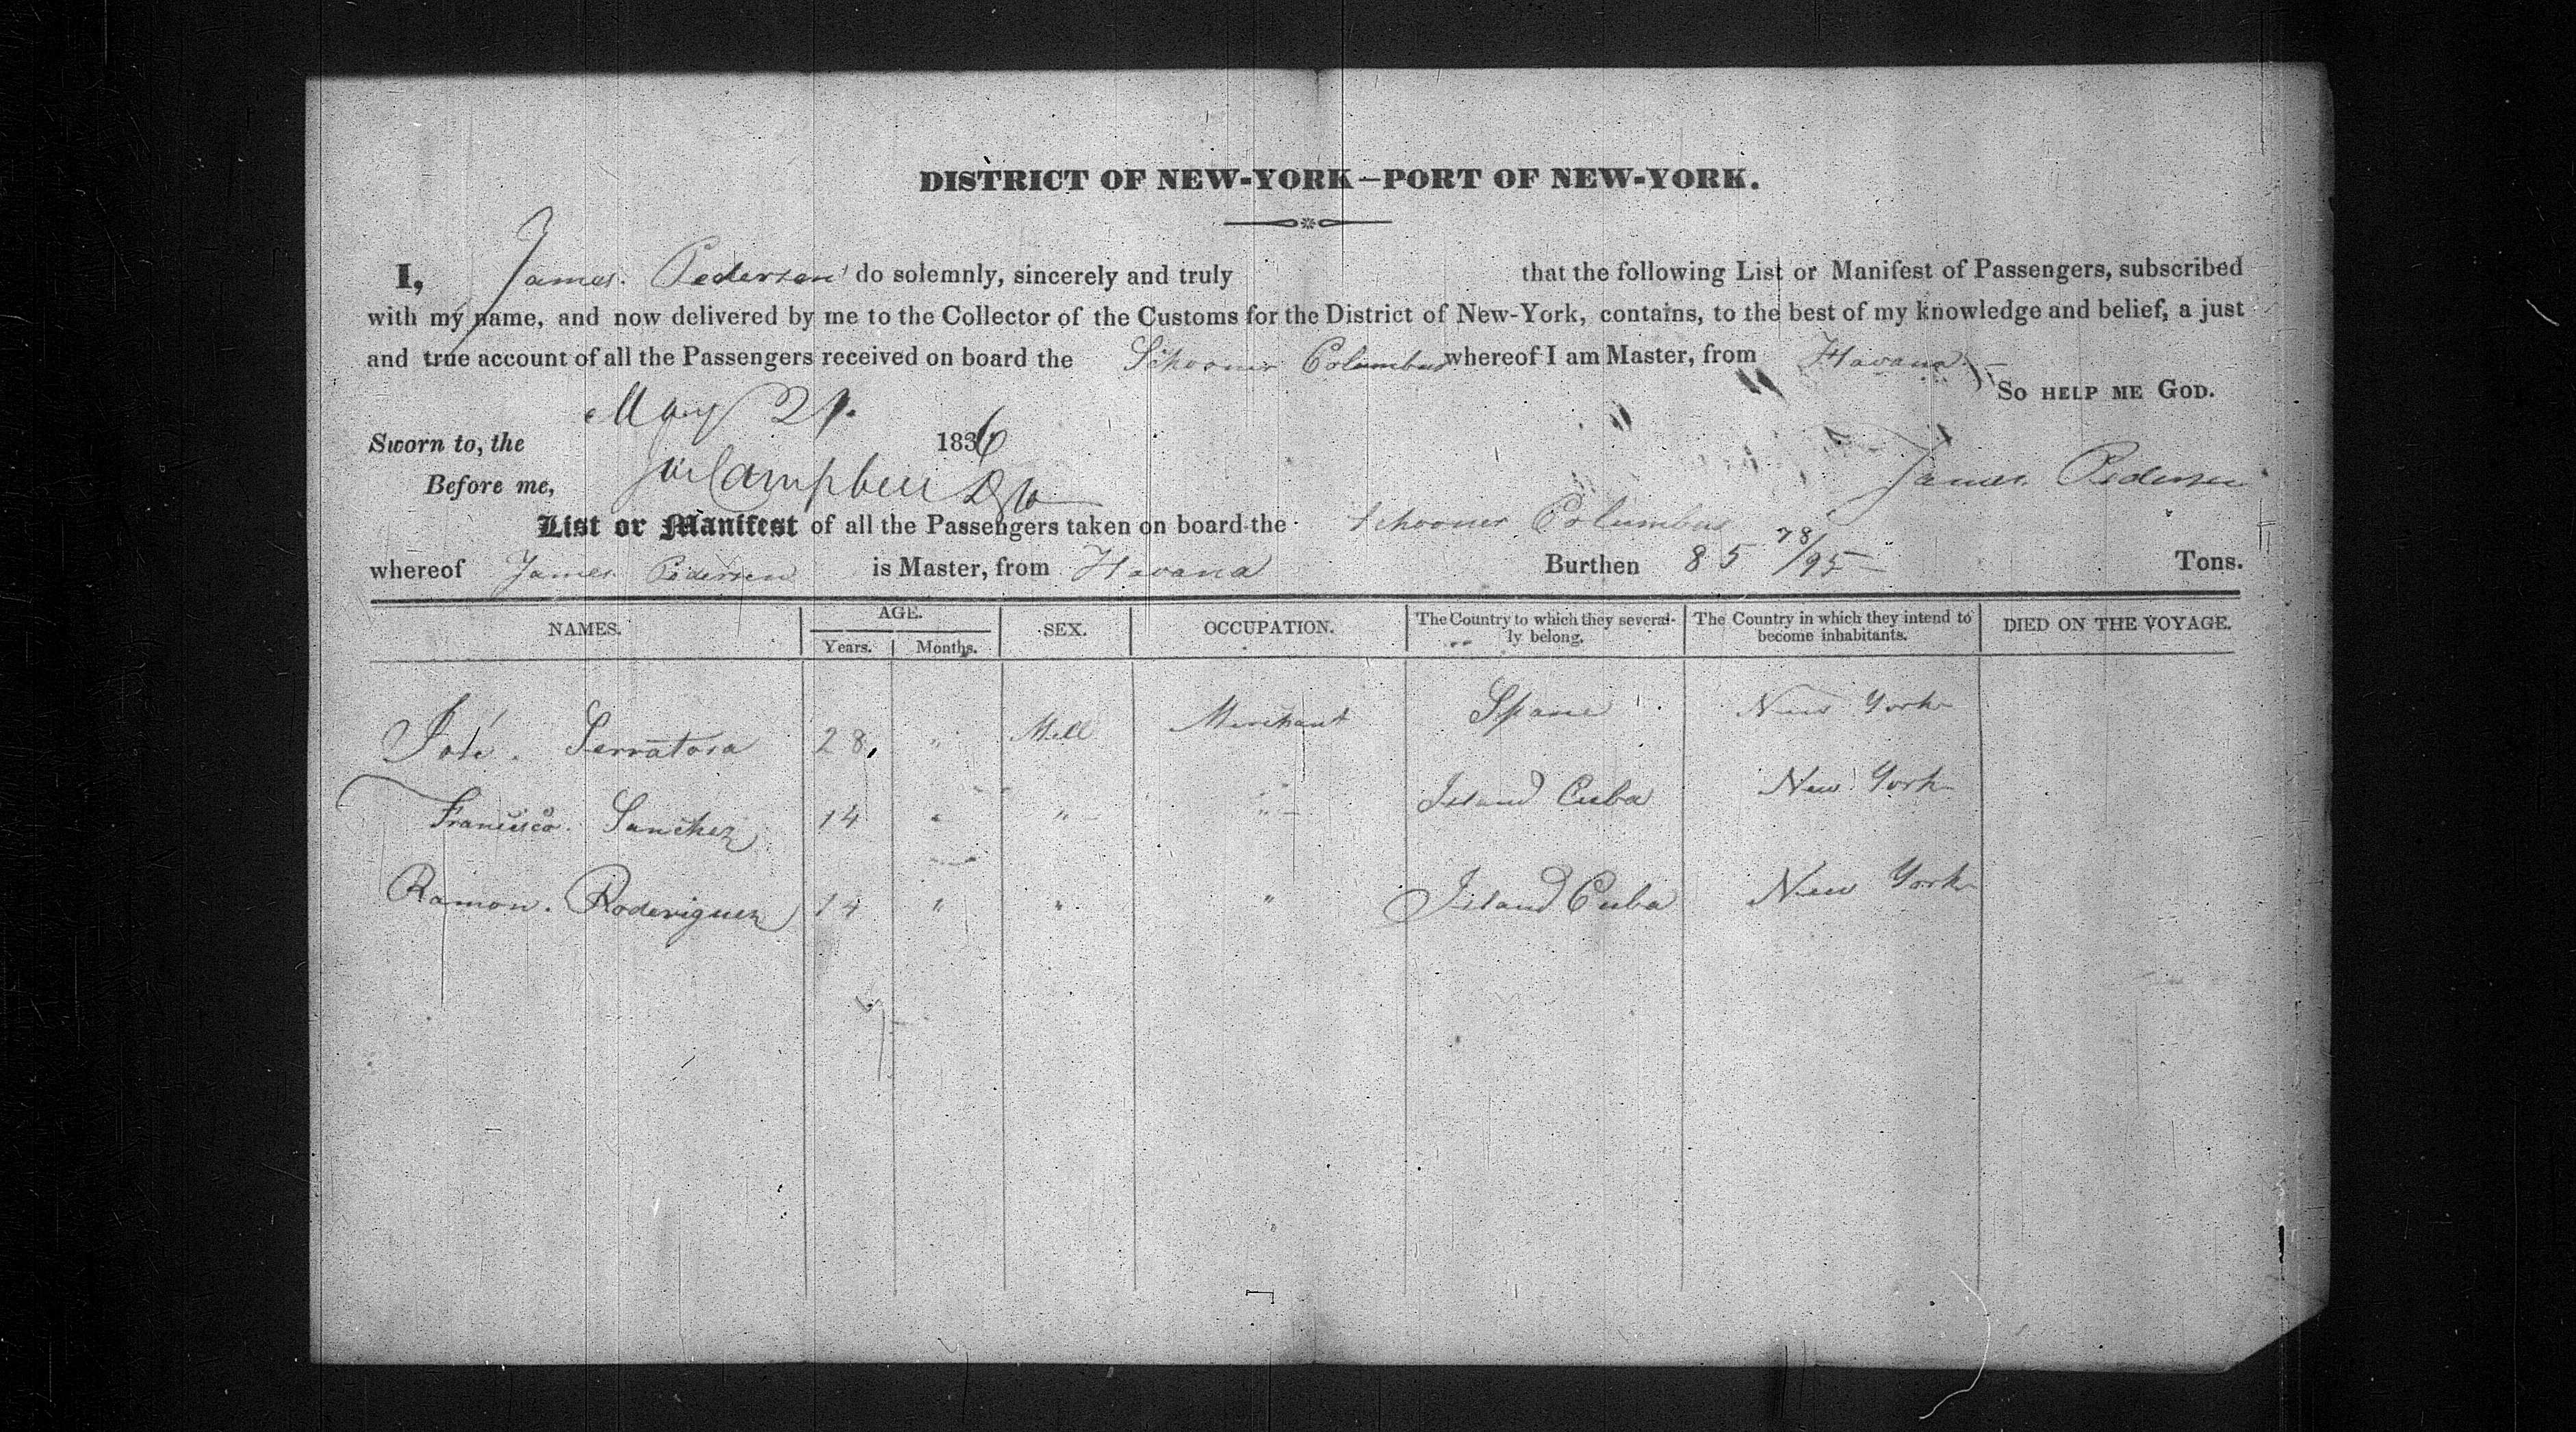 DISTRICT OF NEW-YORK—PORT OF NEW-YORK.
I, James. Pedersen do solemnly, sincerely and truly that the following List or Manifest of Passengers, subscribed
with my name, and now delivered by me to the Collector of the Customs for the District of New-York, contains, to the best of my knowledge and belief, a just
and true account of all the Passengers received on board the Schooner Columbus whereof I am Master, from Havana
So HELP ME GOD.
Sworn to, the May 21. 1836
Before me, Campbell James Pedersen
List or Manifest of all the Passengers taken on board the Schooner Columbus
whereof James Pedersen is Master, from Havana Burthen 85 78/95 Tons.
NAMES. AGE. SEX. OCCUPATION. The Country to which they several- The Country in which they intend to DIED ON THE VOYAGE.
Years. Months. ly belong. become inhabitants.
José. Serratosa 28, " Mell Merchant Spane New York
Francisco. Sanchez 14 " " " Island Cuba New York
Ramon. Roderiguez 14 " " " Island Cuba New York